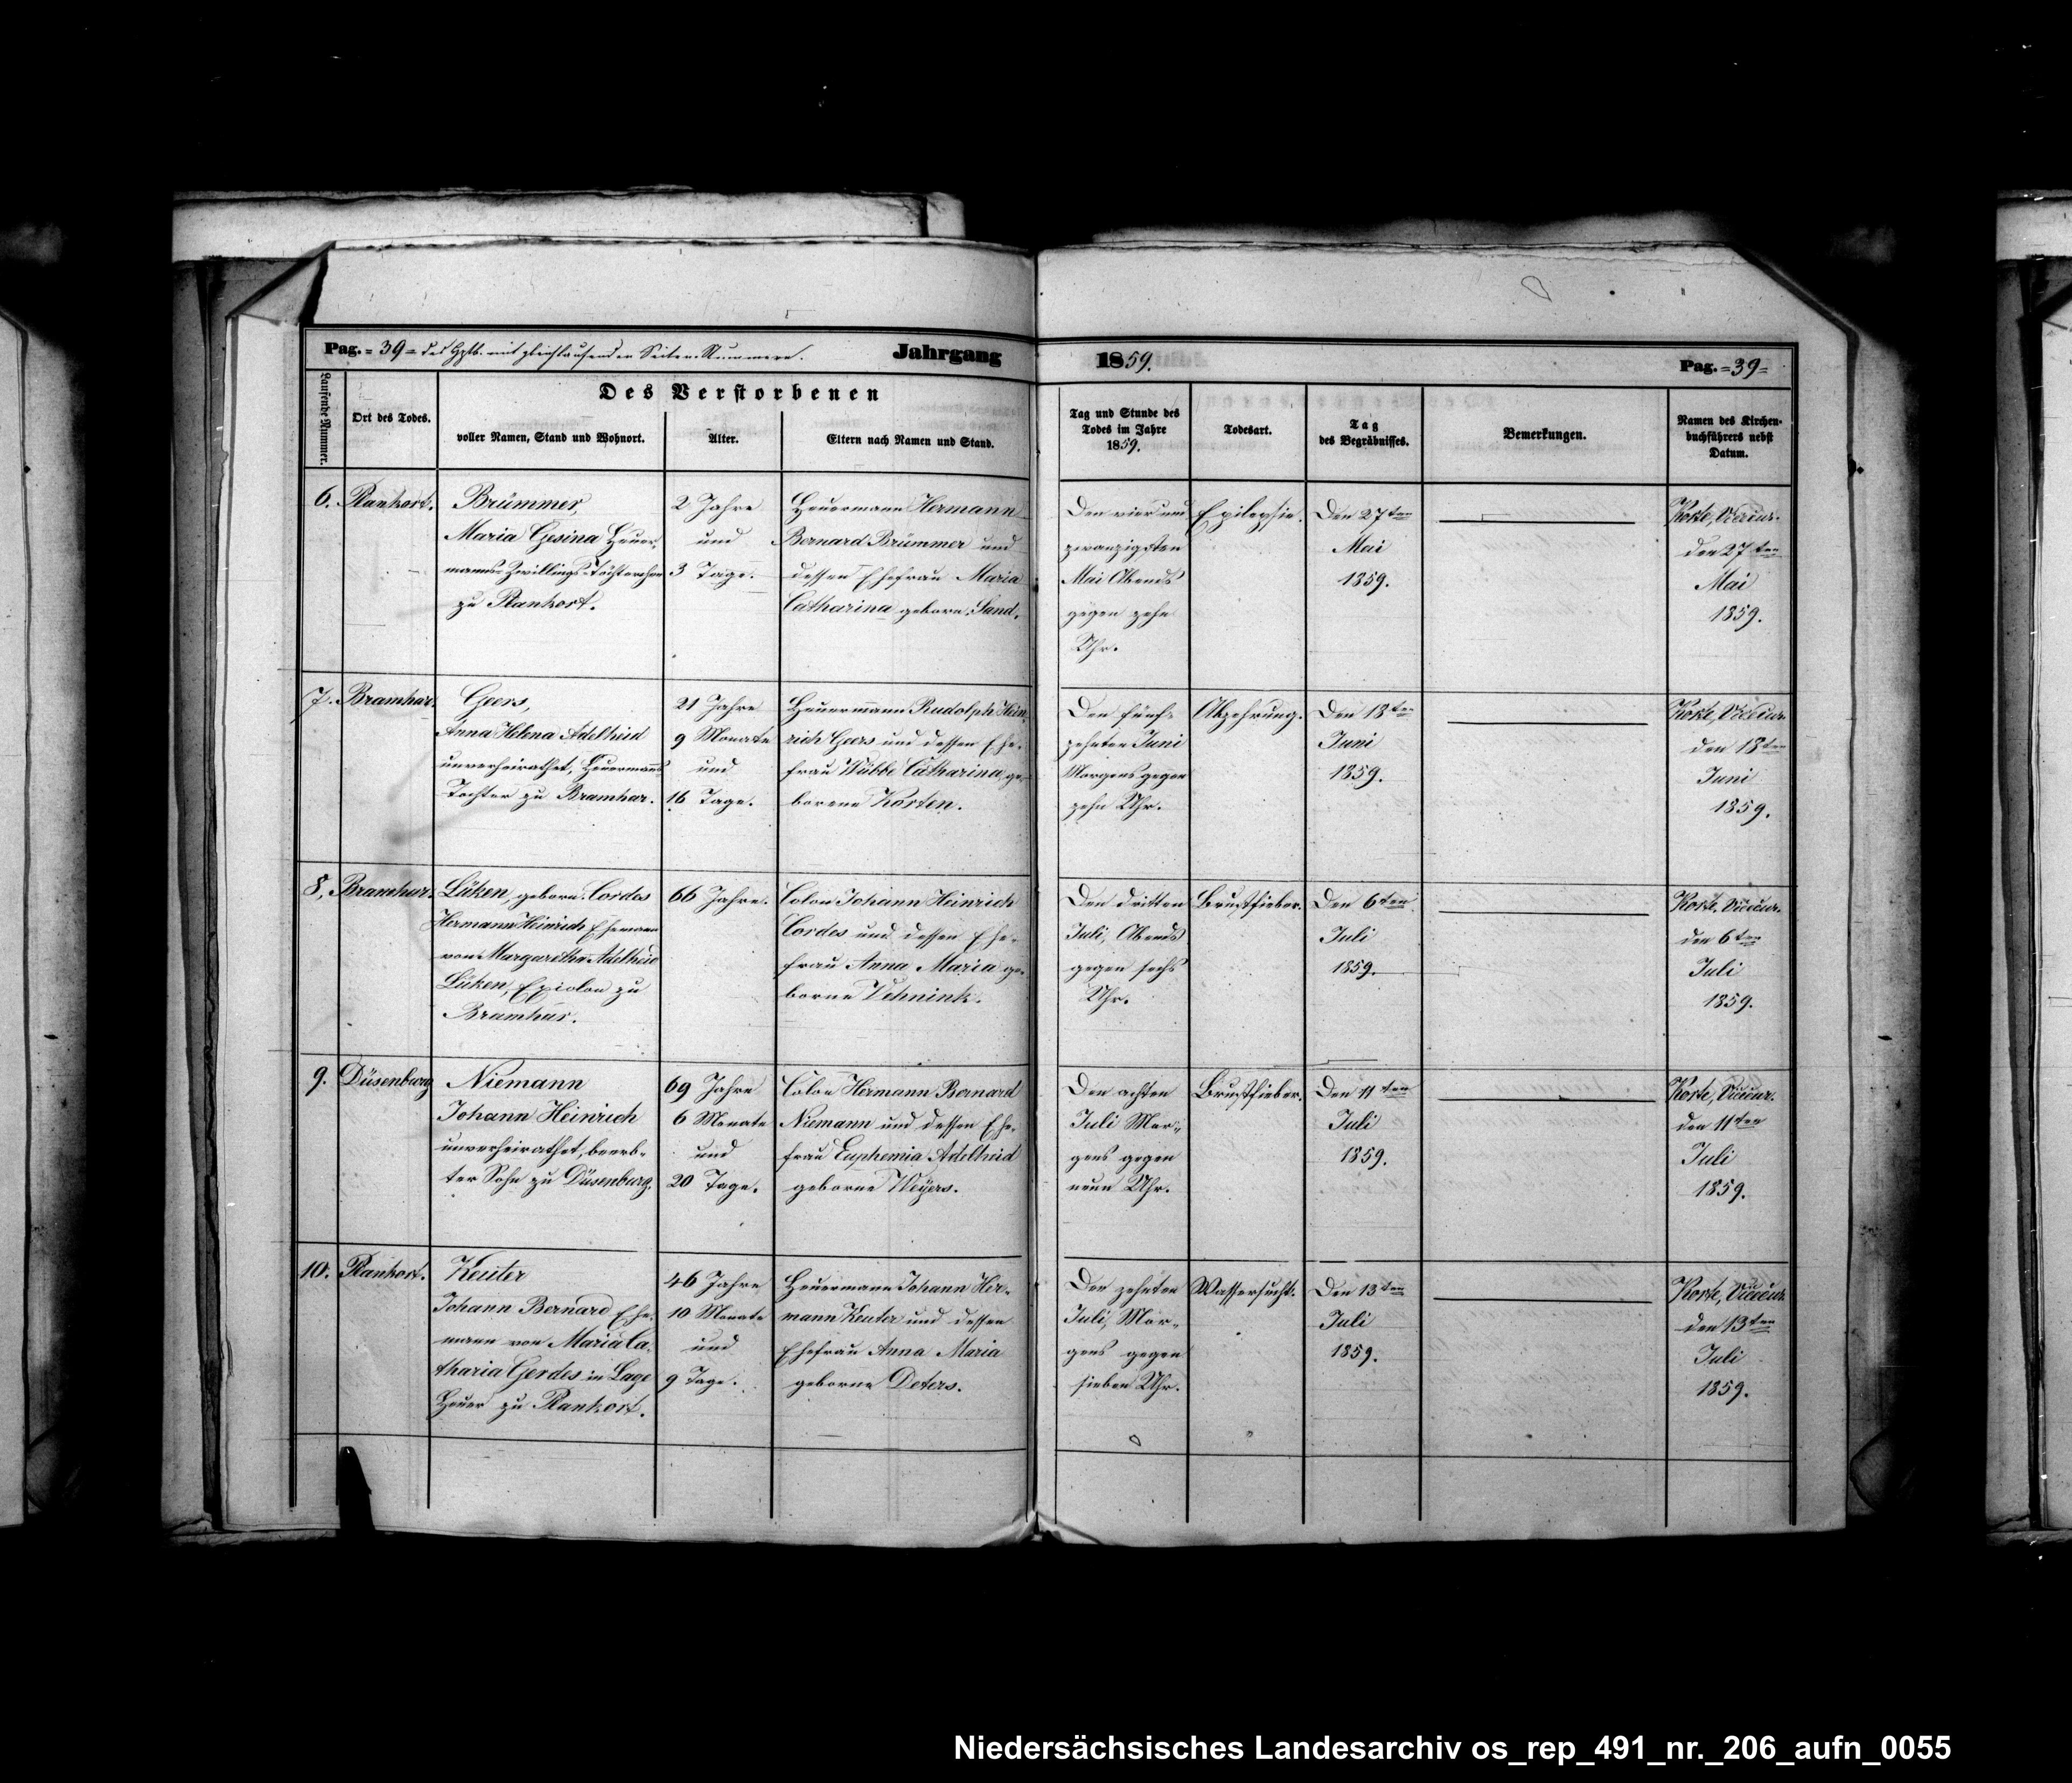 Pag. = 39 = des Hptb. mit gleichlaufenden Seiten-Nummern. Jahrgang 1859. Pag. = 39 =
Des Verstorbenen
Laufende Nummer.
Ort des Todes.
voller Namen, Stand und Wohnort.
Alter.
Eltern nach Namen und Stand.
Tag und Stunde des
Todes im Jahre
1859.
Todesart.
Tag
des Begräbnisses.
Bemerkungen.
Namen des Kirchen-
buchführers nebst
Datum.
6.
Plankort.
Brümmer,
Maria Gesina Heuer-
manns-Zwillings-Töchterchen
zu Plankort.
2 Jahre
und
3 Tage.
Heuermann Hermann
Bernard Brümmer und
dessen Ehefrau Maria
Catharina geborn. Sand.
Den vier und
zwanzigsten
Mai Abends
gegen zehn
Uhr.
Epilepsie.
Den 27ten
Mai
1859.
Korte, Vicecur.
den 27ten
Mai
1859.
7.
Bramhar.
Geers,
Anna Helena Adelheid
unverheirathet, Heuermanns
Tochter zu Bramhar.
21 Jahre
9 Monate
und
16 Tage.
Heuermann Rudolph Hein-
rich Geers und dessen Ehe-
frau Wübbe Catharina ge-
borene Karten.
Den fünf-
zehnten Juni
Morgens gegen
zehn Uhr.
Abzehrung.
Den 18ten
Juni
1859.
Korte, Vicecur.
den 18ten
Juni
1859.
8.
Bramhar.
Lüken, geborn. Cordes
Hermann Heinrich Ehemann
von Margaretha Adelheid
Lüken, Excolon zu
Bramhar.
66 Jahre.
Colon Johann Heinrich
Cordes und dessen Ehe-
frau Anna Maria ge-
borne Vehnink.
Den dritten
Juli, Abends
gegen sechs
Uhr.
Brustfieber.
Den 6ten
Juli
1859.
Korte, Vicecur.
den 6ten
Juli
1859.
9.
Düsenburg
Niemann
Johann Heinrich
unverheirathet, beerb-
ter Sohn zu Düsenburg.
69 Jahre
6 Monate
und
20 Tage.
Colon Hermann Bernard
Niemann und dessen Ehe-
frau Euphemia Adelheid
geborne Weÿers.
Den achten
Juli Mor-
gens gegen
neun Uhr.
Brustfieber.
Den 11ten
Juli
1859.
Korte, Vicecur.
den 11ten
Juli
1859.
10.
Plankort.
Keuter
Johann Bernard Ehe-
mann von Maria Ca-
tharia Gerdes in Lage
Heuer zu Plankort.
46 Jahre
10 Monate
und
9 Tage.
Heuermann Johann Her-
mann Keuter und dessen
Ehefrau Anna Maria
geborne Deters.
Den zehnten
Juli, Mor-
gens gegen
sieben Uhr.
Wassersucht.
Den 13ten
Juli
1859.
Korte, Vicecur.
den 13ten
Juli
1859.
Niedersächsisches Landesarchiv os_rep_491_nr._206_aufn_0055